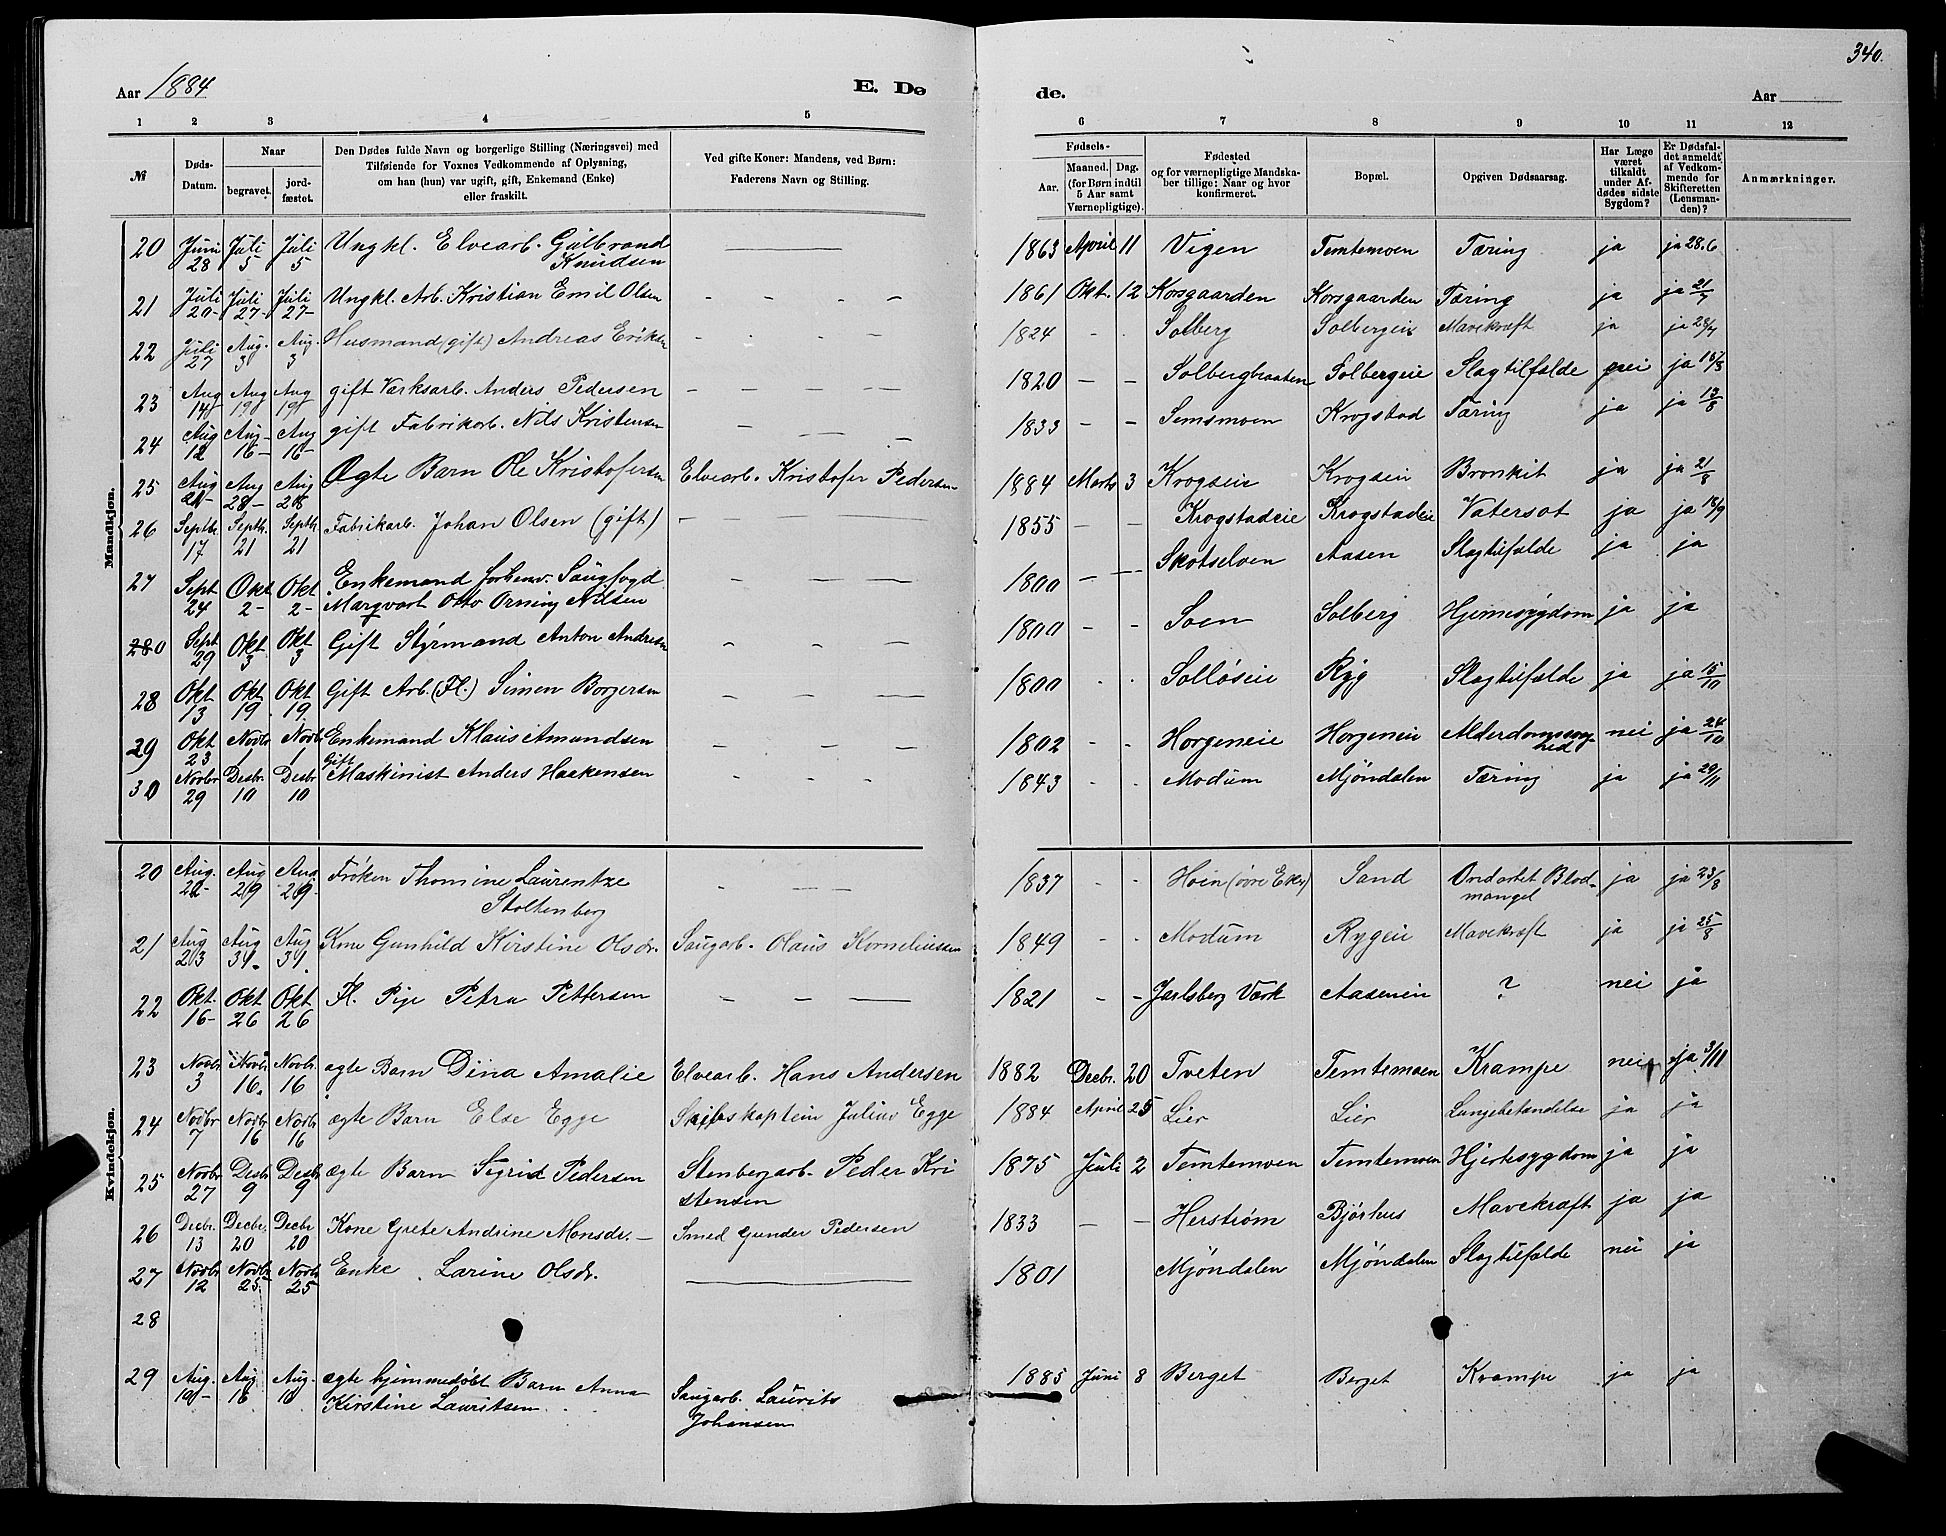 340.
Aar 1884
E. Dø
de.
Aar
1 2 3 4 5
6 7 8 9 10 11 12
№
Døds-
Datum.
Naar
begravet.
jord-
fæstet.
Den Dødes fulde Navn og borgerlige Stilling (Næringsvei) med
Tilføiende for Voxnes Vedkommende af Oplysning,
om han (hun) var ugift, gift, Enkemand (Enke)
eller fraskilt.
Ved gifte Koner: Mandens, ved Børn:
Faderens Navn og Stilling.
Fødsels-
Aar.
Maaned. Dag.
(for Børn indtil
5 Aar samt
Værnepligtige).
Fødested
og for værnepligtige Mandska-
ber tillige: Naar og hvor
konfirmeret.
Bopæl.
Opgiven Dødsaarsag.
Har Læge
været
tilkaldt
under Af-
dødes sidste
Sygdom?
Er Dødsfal-
det anmeldt
af Vedkom-
mende for
Skifteretten
(Lensman-
den)?
Anmærkninger.
Mandkjøn.
20 Juni 28 Juli 5 Juli 5 Ungkl. Elvearb. Gulbrand Knudsen — 1863 April 11 Vigen Temtemoen Tæring ja ja 28.6
21 Juli 20 Juli 27 Juli 27 Ungkl. Arb. Kristian Emil Olsen - - - - 1861 Okt. 12 Korsgaarden Korsgaarden Tæring ja ja 21/7
22 Juli 27 Aug. 3 Aug. 3 Husmand (gift) Andreas Eriksen - - - - 1824 - - Solberg Solbergeie Mavekræft ja ja 28/7
23 Aug 14 Aug 19 Aug 19 gift Værksarb. Anders Pedersen - - - - 1820 - - Solberghaaten Solbergeie Slagtilfælde nei ja
24 Aug 12 Aug 16 Aug 16 gift Fabrikarb. Nils Kristensen - - - 1833 - - Semsmoen Krogstad Tæring ja ja 13/8
25 Aug 21 Aug 28 Aug 28 Ægte Barn Ole Kristofersen Elvearb. Kristofer Pedersen 1884 Marts 3 Krogseie Krogseie Bronkit ja ja 21/8
26 Septbr. 17 Septbr. 21 Septbr. 21 Fabrikarb. Johan Olsen (gift) - - - 1855 - - Krogstadeie Krogstadeie Vatersot ja ja 18/9
27 Sept 24 Okt 2 Okt 2 Enkemand Saugfogd
Margvart Otto Orning Nilsen - - - 1800 - - Skotselven Aasen Slagtilfælde ja ja
280 Sept 29 Okt 3 Okt 3 Gift Styrmand Anton Andresen - - - 1800 - - Soen Solberg Hjernesygdom ja ja
28 Okt 13 Okt 19 Okt 19. Gift Arb. (Fl.) Simen Borgersen - - - 1800 - - Solløseie Ryg Slagtilfælde ja ja 15/10
29 Okt 23 Novbr 1 Novbr 1 Enkemand Klaus Amundsen - - - 1802 - - Horgeneie Horgeneie Alderdomssvaghed nei ja 24/10
30 Novbr 29 Desbr. 10 Desbr 10 Gift Maskinist Anders Haakensen - - - 1843 - - Modum Mjöndalen Tæring ja ja 29/11
Kvindekjøn.
20 Aug. 22 Aug 29 Aug 29 Frøken Thomine Laurentze
Stoltenberg - - - 1837 - - Hoin (øvre Eker) Sand Ondartet Blod-
mangel ja ja 23/8
21 Aug 23 Aug 31. Aug 31. Kone Gunhild Kirstine Olsdr. Saugarb. Olaus Korneliussen 1849 - - Modum Rygeie Mavekræft ja ja 25/8
22 Okt. 16 Okt 26 Okt 26 Fl. Pige Petra Pettersen - - - 1821 - - Jarlsberg Værk Aaseneie ? nei ja
23 Novbr 3 Novbr. 16. Novbr. 16 ægte Barn Dina Amalie Elvearb. Hans Andersen 1882 Decbr. 20 Tveten Temtemoen Krampe nei ja 3/11
24 Novbr 7 Novbr 16 Novbr. 16 ægte Barn Else Egge Skibskaptein Julius Egge 1884 April 25 Lier Lier Lungebetændelse ja ja
25 Novbr 27 Desbr 9 Desbr 9 ægte Barn Sigrid Pedersen Stenbergarb. Peder Kri
stensen 1875 Juli 2 Temtemoen Temtemoen Hjertesygdom ja ja
26 Decbr. 13 Decbr. 20 Decbr 20 Kone Grete Andrine Monsdr. — Smed Gunder Pedersen 1833 - - Herstrøm Bjørhus Mavekræft ja ja
27 Novbr 12 Novbr. 25 Novbr 25 Enke Larine Olsdr. — 1801 Mjöndalen Mjöndalen Slagtilfælde nei ja
28
29 Aug. 10 Aug 16 Aug. 16 ægte hjemmedøbt Barn Anna
Kirstine Lauritsen Saugarb. Laurits
Johansen 1885 Juni 8 Berget Berget Krampe ja ja